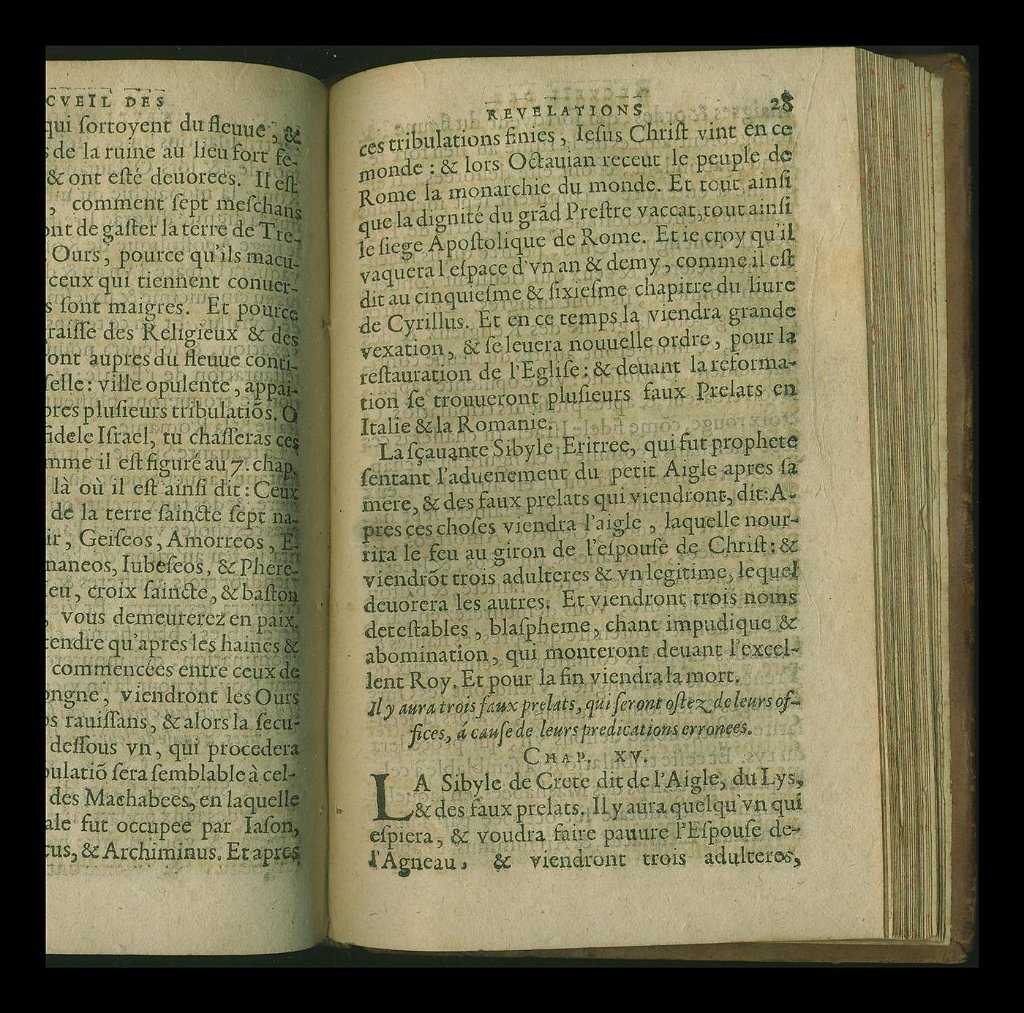 CVEIL DES
qui ſortoyent du fleuue, &
de la ruine au lieu fort ſe-
& ont eſté deuorees. Il eſt
, comment ſept meſchans
ont de gaſter la terre de Tre-
Ours, pource qu'ils macu-
ceux qui tiennent conuer-
s ſont maigres. Et pource
raiſſe des Religieux & des
ront aupres du fleuue conti-
ſelle: ville opulente, appai-
pres pluſieurs tribulatiõs. O
fidele Iſrael, tu chaſſeras ces
mme il eſt figuré au 7. chap.
là où il eſt ainſi dit: Ceux
de la terre ſaincte ſept na-
ir, Geiſeos, Amorreos, E-
naneos, Iubeſeos, & Phere-
eu, croix ſaincte, & baſton
, vous demeurerez en paix.
tendre qu'apres les haines &
commencées entre ceux de
ongne, viendront les Ours
os rauiſſans, & alors la ſecu-
deſſous vn, qui procedera
bulatiõ ſera ſemblable à cel-
des Machabees, en laquelle
ale fut occupee par Iaſon,
cus, & Archiminus. Et apres
REVELATIONS 28
ces tribulations finies, Ieſus Chriſt vint en ce
monde: & lors Octauian receut le peuple de
Rome la monarchie du monde. Et tout ainſi
que la dignité du grãd Preſtre vaccat, tout ainſi
le ſiege Apoſtolique de Rome. Et ie croy qu'il
vaquera l'eſpace d'vn an & demy, comme il eſt
dit au cinquieſme & ſixieſme chapitre du liure
de Cyrillus. Et en ce temps la viendra grande
vexation, & ſe leuera nouuelle ordre, pour la
reſtauration de l'Egliſe: & deuant la reforma-
tion ſe trouueront pluſieurs faux Prelats en
Italie & la Romanie.
La ſçauante Sibyle Eritree, qui fut prophete
ſentant l'aduenement du petit Aigle apres ſa
mere, & des faux prelats qui viendront, dit: A-
pres ces choſes viendra l'aigle, laquelle nour-
rira le feu au giron de l'eſpouſe de Chriſt: &
viendrõt trois adulteres & vn legitime, lequel
deuorera les autres. Et viendront trois noms
deteſtables, blaſpheme, chant impudique &
abomination, qui monteront deuant l'excel-
lent Roy. Et pour la fin viendra la mort.
Il y aura trois faux prelats, qui ſeront oſtez de leurs of-
fices, á cauſe de leurs predications erronees.
CHAP. XV.
LA Sibyle de Crete dit de l'Aigle, du Lys,
& des faux prelats. Il y aura quelqu'vn qui
eſpiera, & voudra faire pauure l'Eſpouſe de
l'Agneau, & viendront trois adulteres,